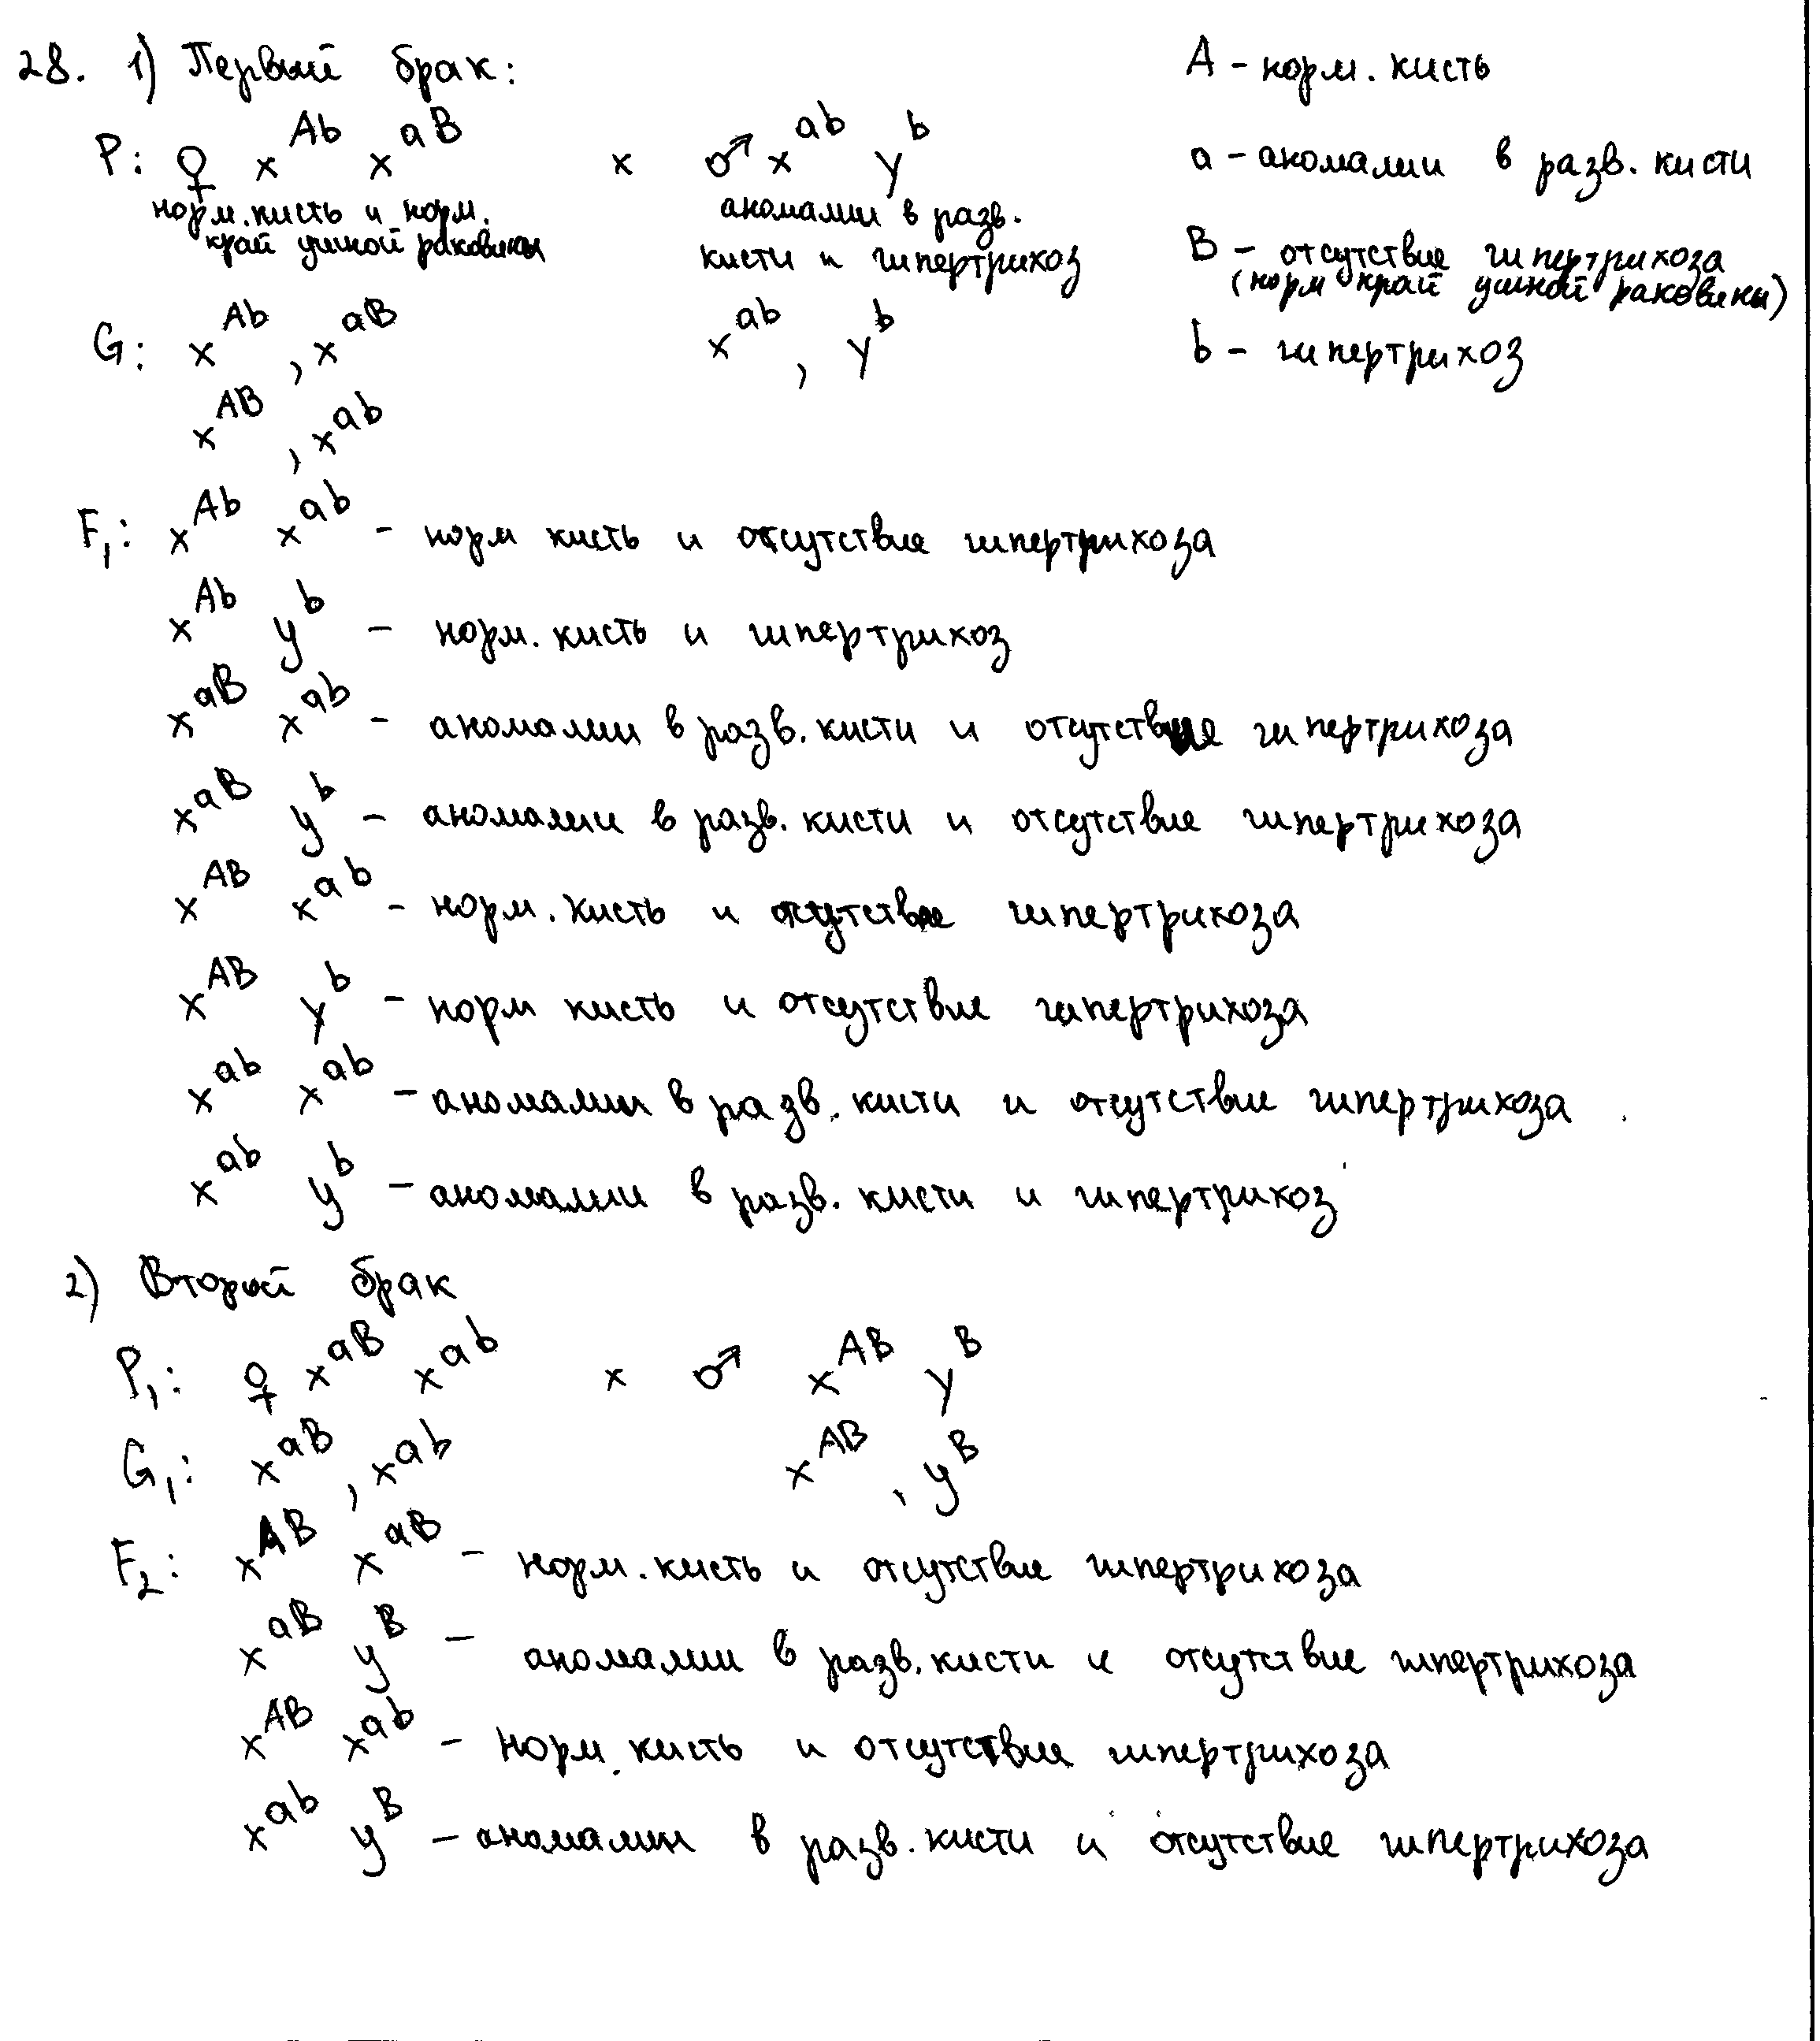 28. 1) Первый брак:
А - норм. кисть
P: ♀ x^Ab x^aB x ♂ x^ab y^b
а - аномалии в разв. кисти
норм. кисть и норм. край ушной раковины
аномалии в разв. кисти и гипертрихоз
B - отсутствие гипертрихоза
(норм край ушной раковины)
G: x^Ab, x^aB x^ab, y^b
b - гипертрихоз
x^AB, x^ab
F1: x^Ab x^ab - норм кисть и отсутствие гипертрихоза
x^Ab y^b - норм. кисть и гипертрихоз
x^aB x^ab - аномалии в разв. кисти и отсутствие гипертрихоза
x^aB y^b - аномалии в разв. кисти и отсутствие гипертрихоза
x^AB x^ab - норм. кисть и отсутствие гипертрихоза
x^AB y^b - норм кисть и отсутствие гипертрихоза
x^ab x^ab - аномалии в разв. кисти и отсутствие гипертрихоза
x^ab y^b - аномалии в разв. кисти и гипертрихоз
2) Второй брак
P1: ♀ x^aB x^ab x ♂ x^AB y^B
G1: x^aB, x^ab x^AB, y^B
F2: x^AB x^aB - норм. кисть и отсутствие гипертрихоза
x^aB y^B - аномалии в разв. кисти и отсутствие гипертрихоза
x^AB x^ab - норм. кисть и отсутствие гипертрихоза
x^ab y^B - аномалии в разв. кисти и отсутствие гипертрихоза